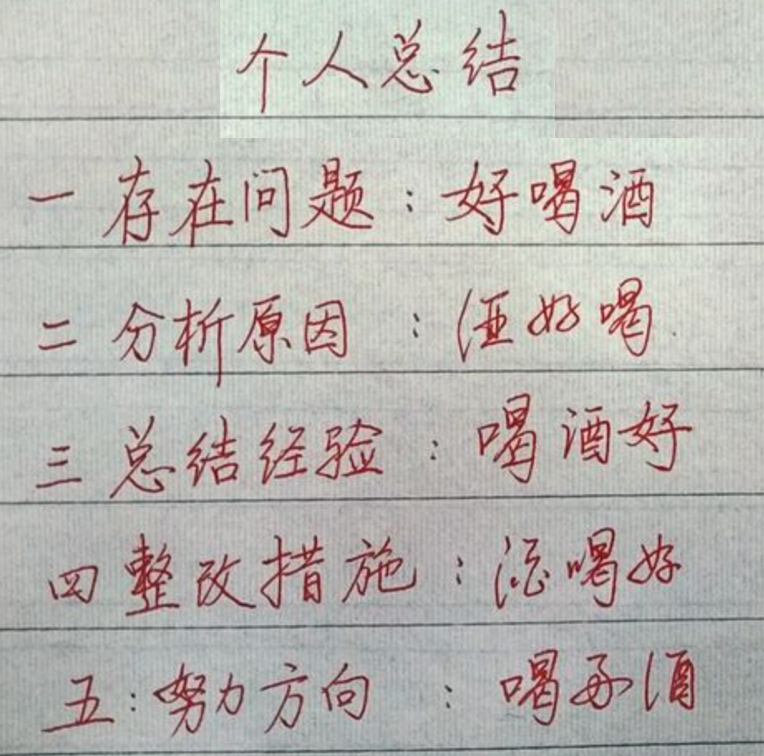 个人总结
一 存在问题：好喝酒
二 分析原因：酒好喝
三 总结经验：喝酒好
四 整改措施：酒喝好
五：努力方向：喝好酒